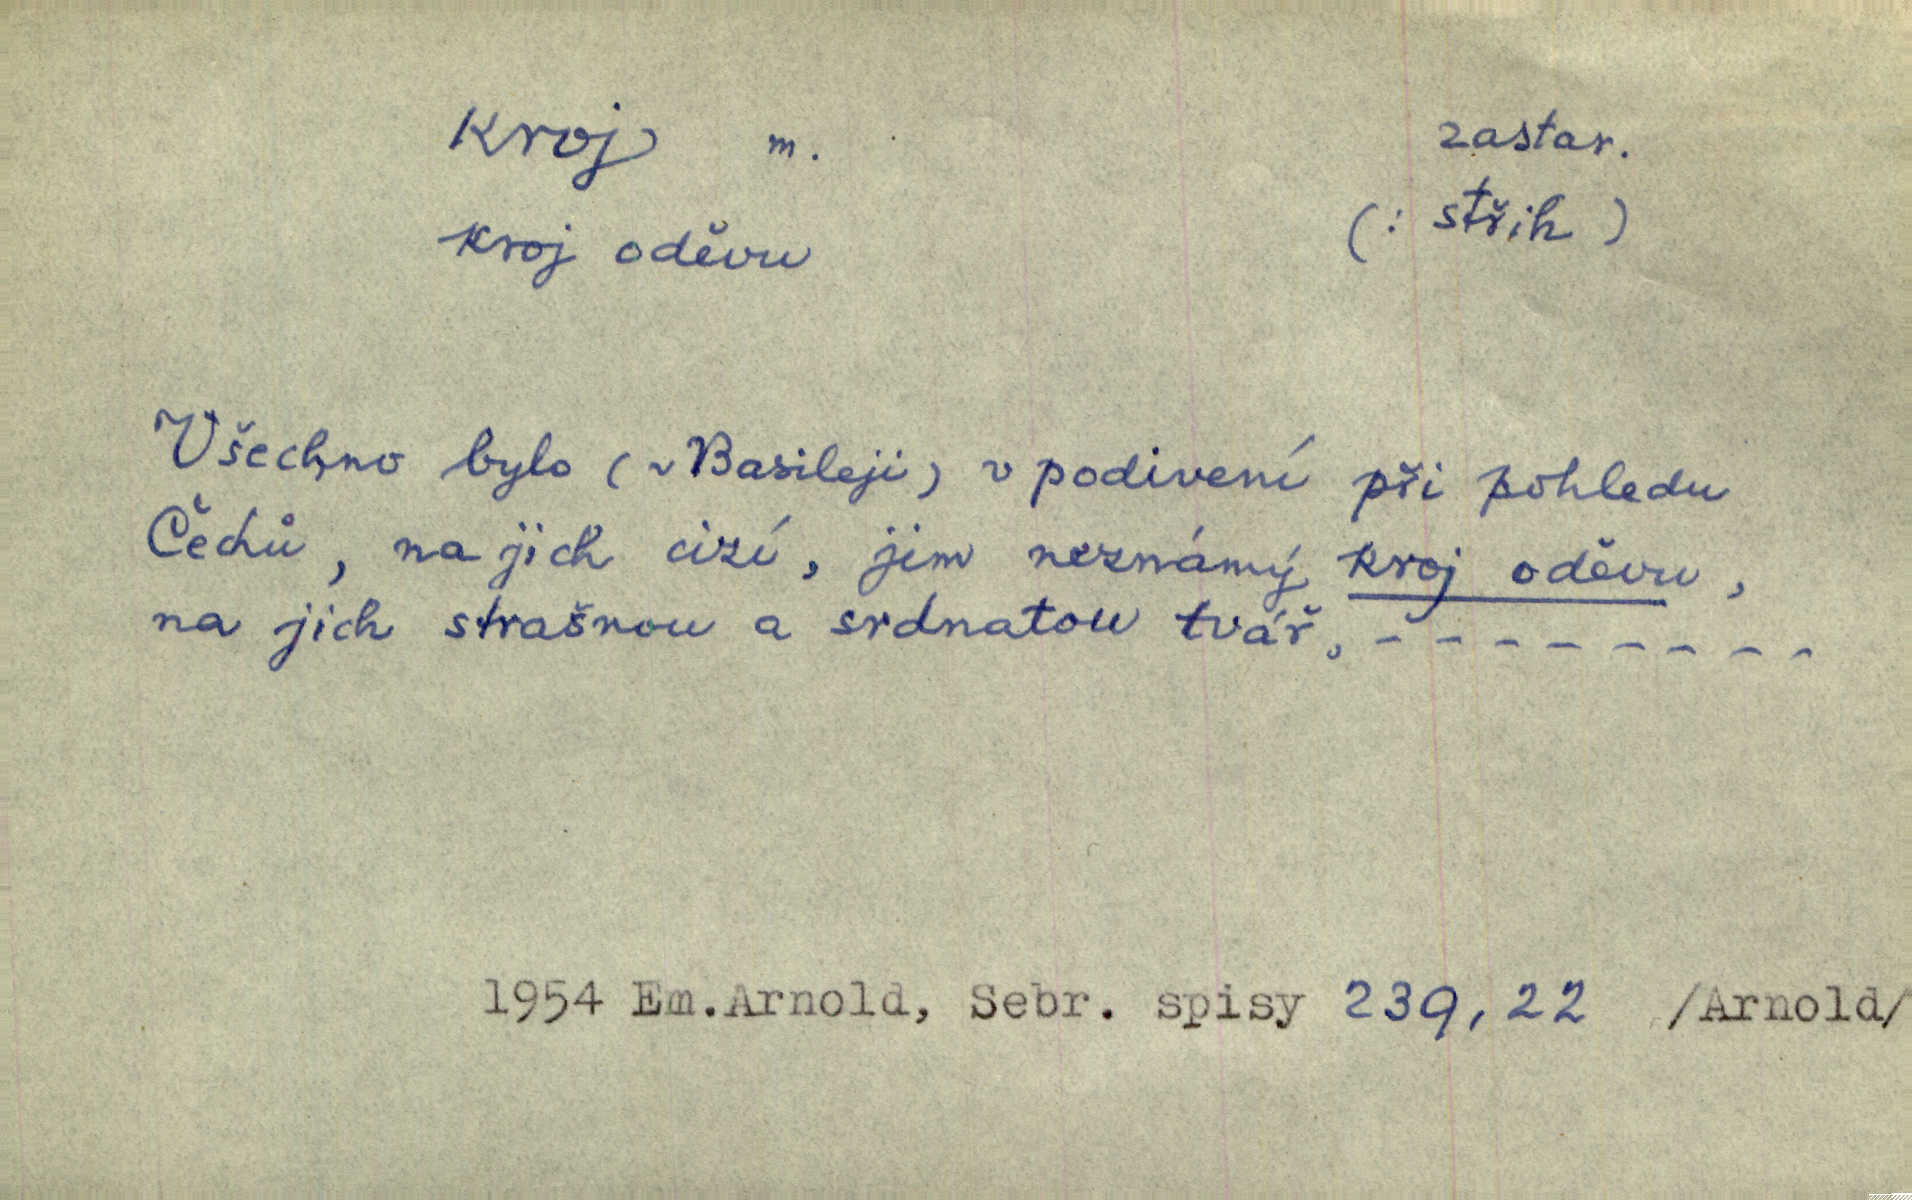 kroj m. zastar.
kroj oděvu (: střih )
Všechno bylo (v Basileji) v podivení při pohledu
Čechů, na jich cizí, jim neznámý kroj oděvu,
na jich strašnou a srdnatou tvář, - - - - - - - -
1954 Em.Arnold, Sebr. spisy 239,22 /Arnold/